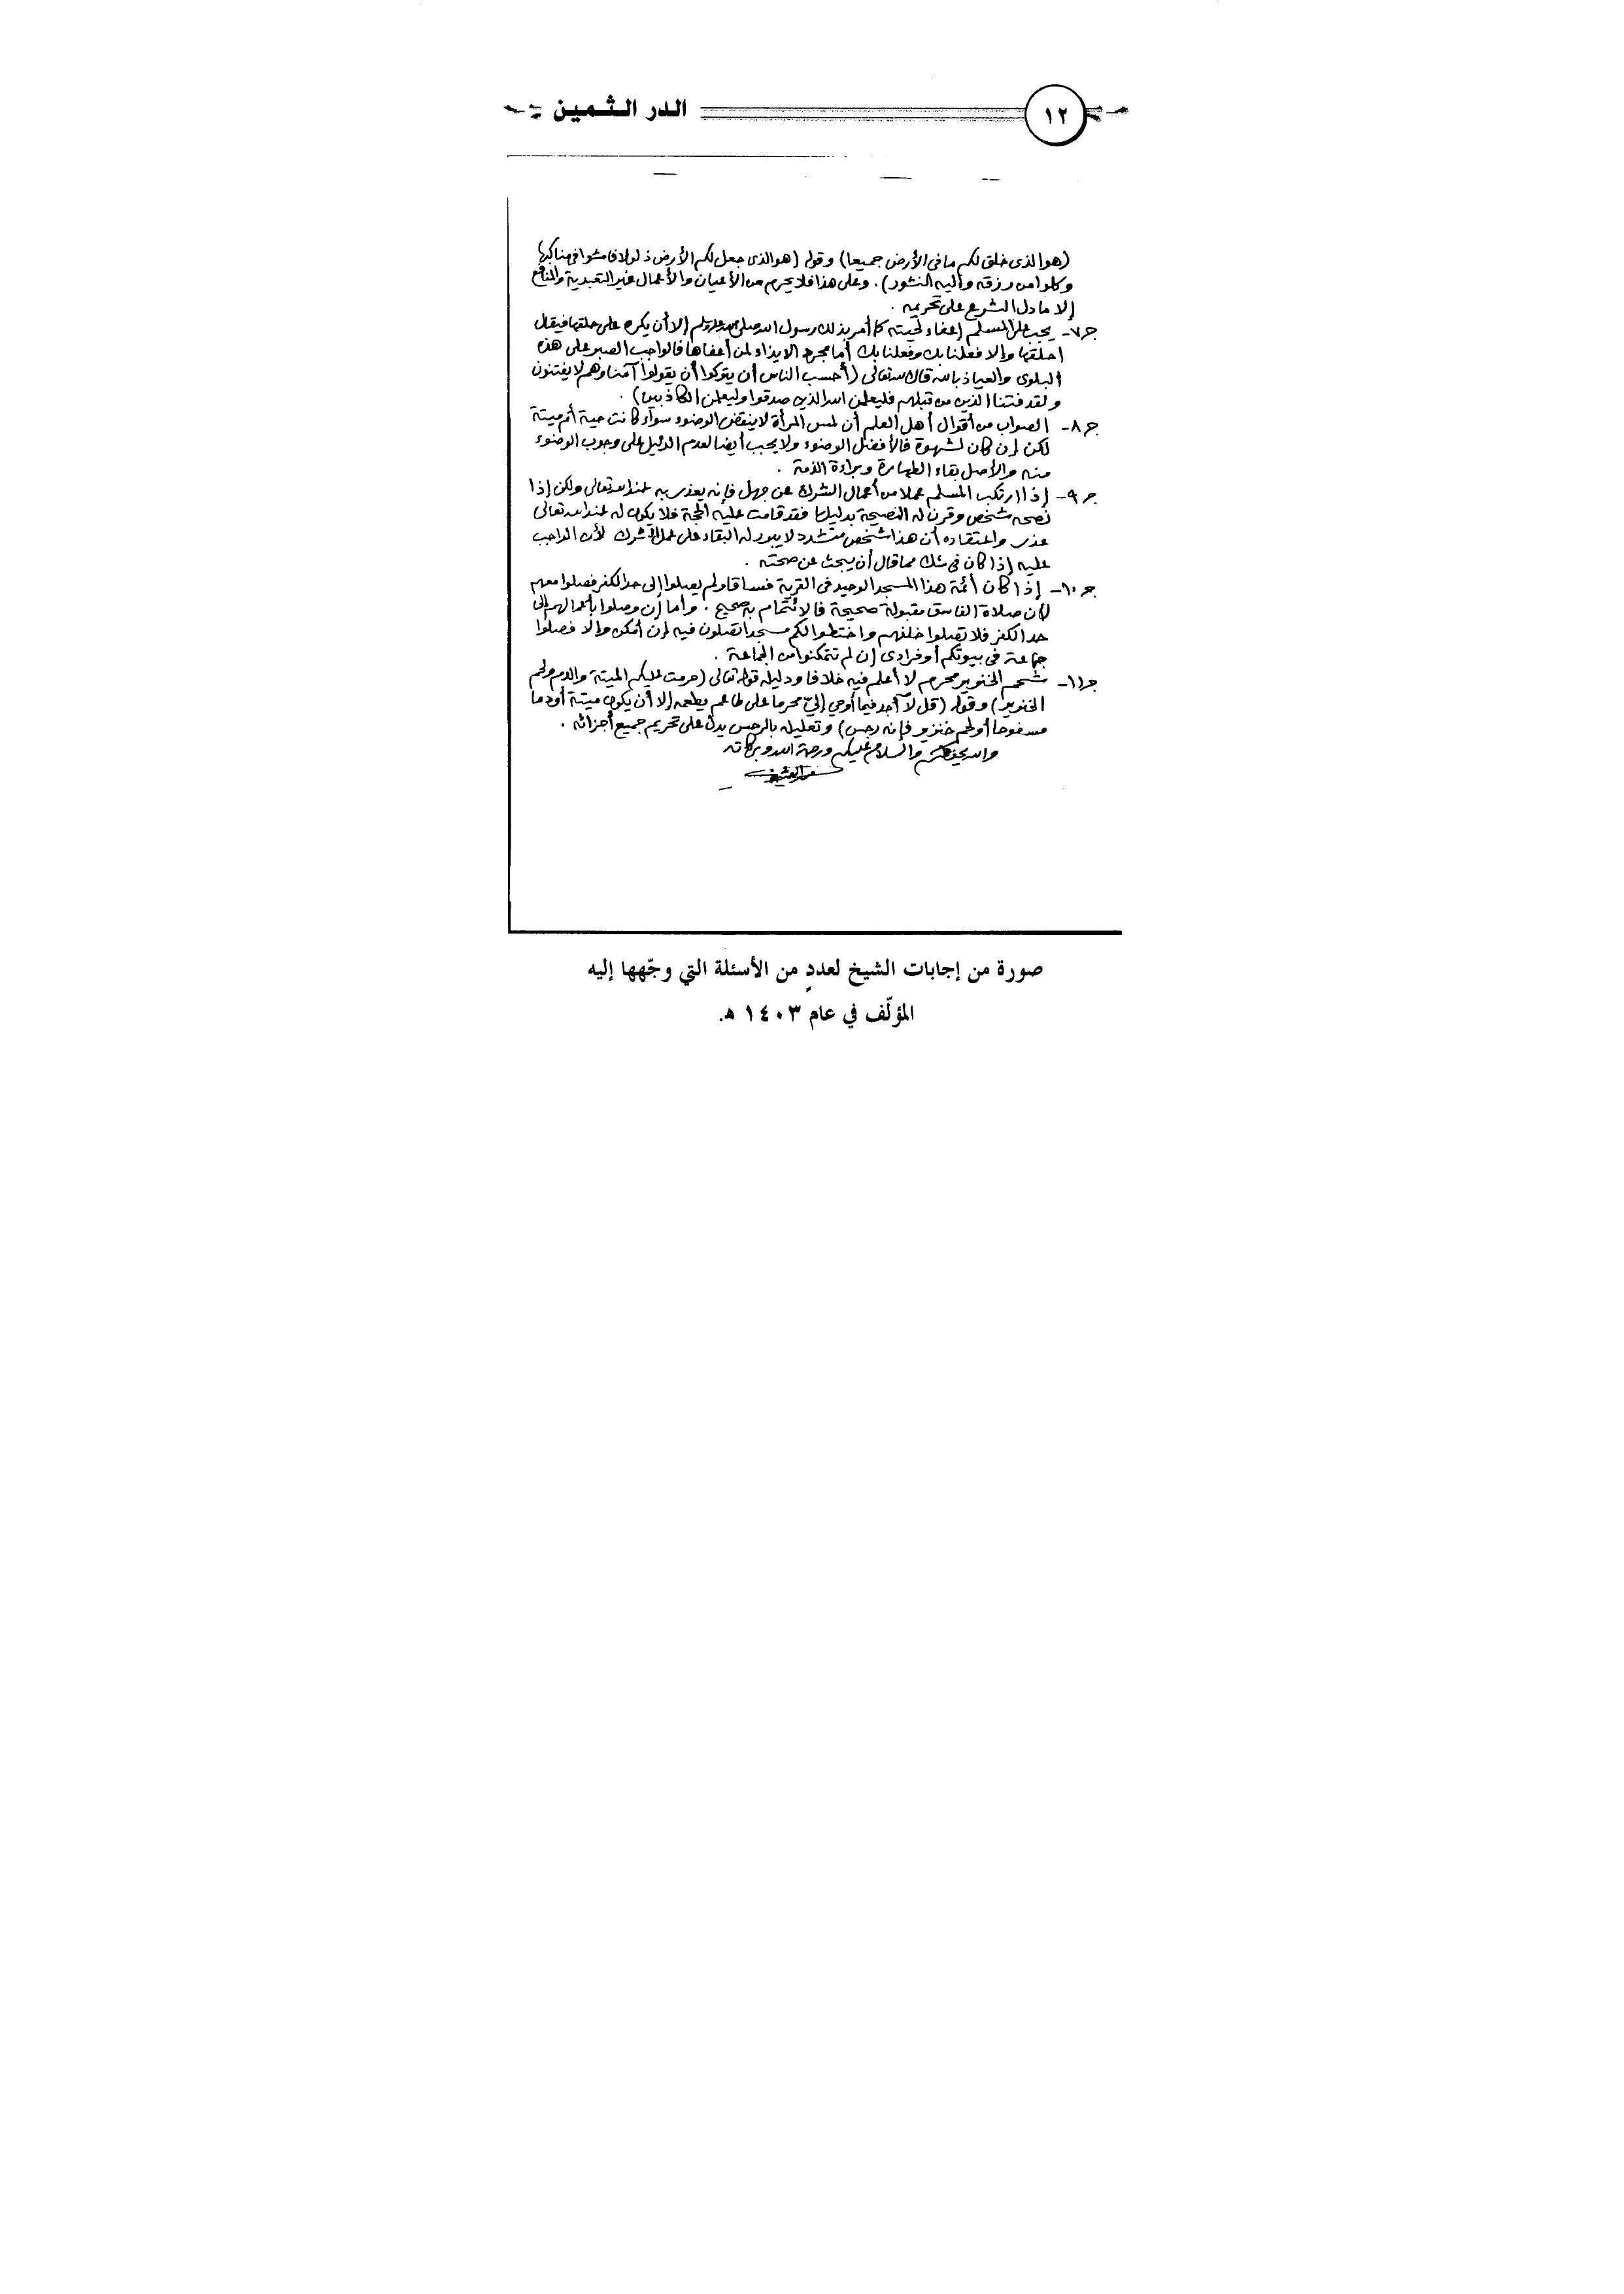 ١٢ الدر الثمين
(هو الذى خلق لكم ما فى الأرض جميعا) وقوله (هو الذى جعل لكم الأرض ذلولا فامشوا فى مناكبها
وكلوا من رزقه وإليه النشور). وعلى هذا فلا يحرم من الأعيان والأعمال غير التعبدية والمنافع
إلا ما دل الشرع على تحريمه.
جـ٧- يجب على المسلم إعفاء لحيته كما أمر بذلك رسول الله صلى الله عليه وسلم إلا أن يكره على حلقها فيقال
احلقها وإلا فعلنا بك وفعلنا بك أما مجرد الايذاء لمن أعفاها فالواجب الصبر على هذه
البلوى والعياذ بالله قال الله تعالى (أحسب الناس أن يتركوا أن يقولوا آمنا وهم لا يفتنون
ولقد فتنا الذين من قبلهم فليعلمن الله الذين صدقوا وليعلمن الكاذبين).
جـ٨- الصواب من أقوال أهل العلم أن لمس المرأة لا ينقض الوضوء سواء كانت حية أم ميتة
لكن إن كان لشهوة فالأفضل الوضوء ولا يجب أيضا لعدم الدليل على وجوب الوضوء
منه والأصل بقاء الطهارة وبراءة الذمة.
جـ٩- إذا ارتكب المسلم عملا من أعمال الشرك عن جهل فإنه يعذر به عند الله تعالى ولكن إذا
نصحه شخص وقرن له النصيحة بدليلها فقد قامت عليه الحجة فلا يكون له عند الله تعالى
عذر واعتقاده أن هذا شخص متشدد لا يبرر له البقاء على عمل الشرك لأن الواجب
عليه إذا كان فى شك مما قال أن يبحث عن صحته.
جـ١٠- إذا كان أئمة هذا المسجد الوحيد فى القرية فساقا ولم يصلوا إلى حد الكفر فصلوا معهم
لأن صلاة الفاسق مقبولة صحيحة فالائتمام به صحيح. وأما إن وصلوا بأعمالهم إلى
حد الكفر فلا تصلوا خلفهم واختطوا لكم مسجدا تصلون فيه إن أمكن وإلا فصلوا
جماعة فى بيوتكم أو فرادى إن لم تتمكنوا من الجماعة.
جـ١١- شحم الخنزير محرم لا أعلم فيه خلافا ودليله قوله تعالى (حرمت عليكم الميتة والدم ولحم
الخنزير) وقوله (قل لا أجد فيما أوحي إليّ محرما على طاعم يطعمه إلا أن يكون ميتة أو دما
مسفوحا أو لحم خنزير فإنه رجس) وتعليله بالرجس يدل على تحريم جميع أجزائه.
والله يحفظكم والسلام عليكم ورحمة الله وبركاته
صورة من إجابات الشيخ لعددٍ من الأسئلة التي وجّهها إليه
المؤلّف في عام ١٤٠٣ هـ.